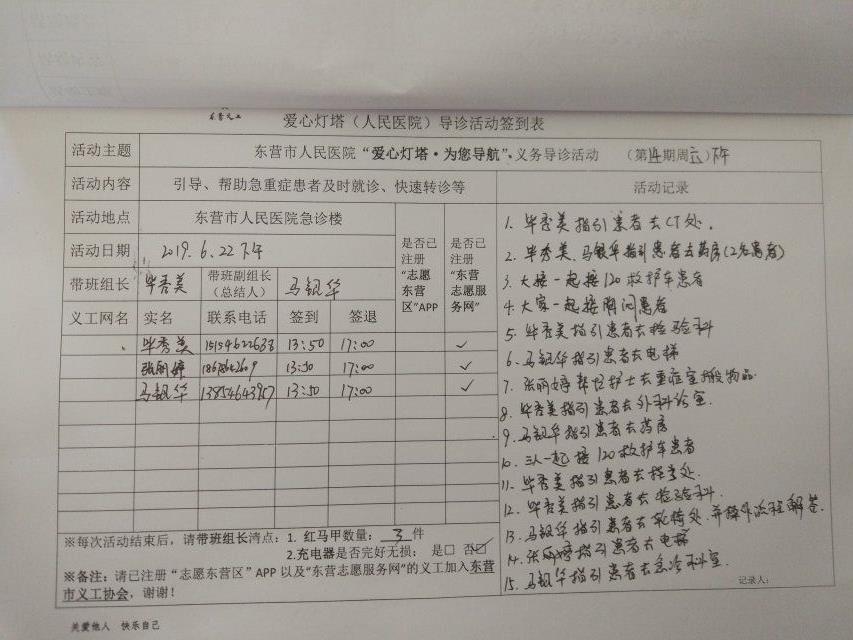 东营义工
爱心灯塔（人民医院）导诊活动签到表
活动主题 东营市人民医院“爱心灯塔·为您导航”义务导诊活动 （第 期周六）下午
活动内容 引导、帮助急重症患者及时就诊、快速转诊等 活动记录
活动地点 东营市人民医院急诊楼
活动日期 2019.6.22下午
是否已注册“志愿东营区”APP
是否已注册“东营志愿服务网”
带班组长 毕秀美 带班副组长（总结人） 马银华
义工网名 实名 联系电话 签到 签退
毕秀美 15154622688 13:50 17:00 ✓
张丽婷 13:50 17:00 ✓
马银华 13854643957 13:50 17:00 ✓
※每次活动结束后，请带班组长清点：1. 红马甲数量：3件
2.充电器是否完好无损： 是□ 否☑
※备注：请已注册“志愿东营区”APP以及“东营志愿服务网”的义工加入东营
市义工协会，谢谢！
1. 毕秀美指引患者去CT处.
2. 毕秀美、马银华指引患者去药房(2名患者)
3. 大接一起接120救护车患者
4. 大家一起接胸闷患者
5. 毕秀美指引患者去检验科
6. 马银华指引患者去电梯
7. 张丽婷帮忙护士去重症室搬物品
8. 毕秀美指引患者去外科诊室.
9. 马银华指引患者去药房
10. 三人一起接120救护车患者
11. 毕秀美指引患者去挂号处.
12. 毕秀美指引患者去检验科.
13. 马银华指引患者去轮椅处.并操作流程解答.
14. 张丽婷指引患者去电梯
15. 马银华指引患者去急诊科室.
记录人：
关爱他人 快乐自己